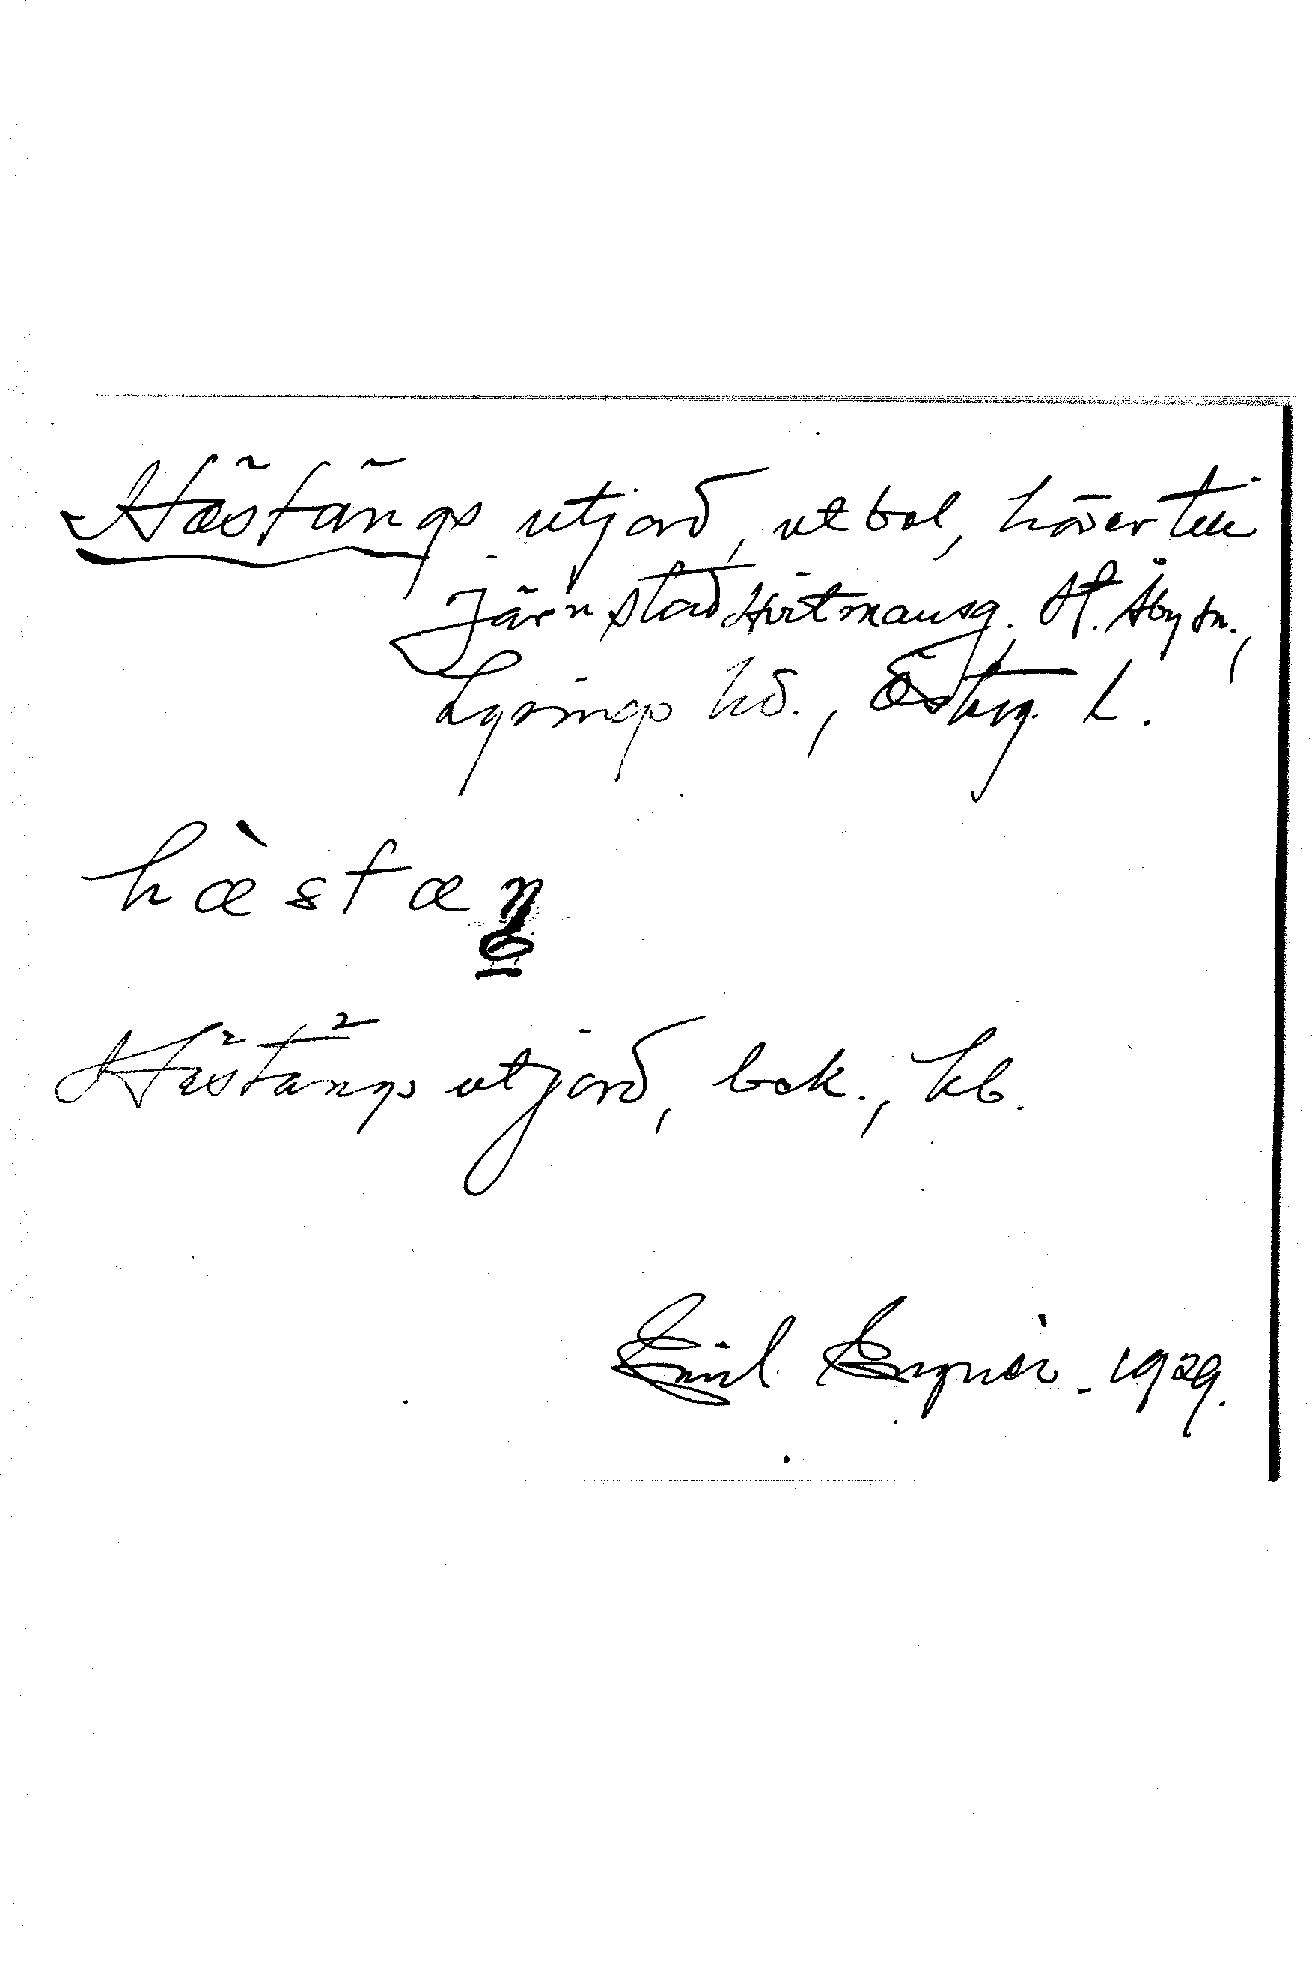 Hästängs utjord, utbol, hörer till
Järnstad Hvitmansg. St. Åby sn.,
Lysings hd., Östrg. L.
hæ̀stæŋ
Hästängs utjord, bek., kb.
Emil 1929.